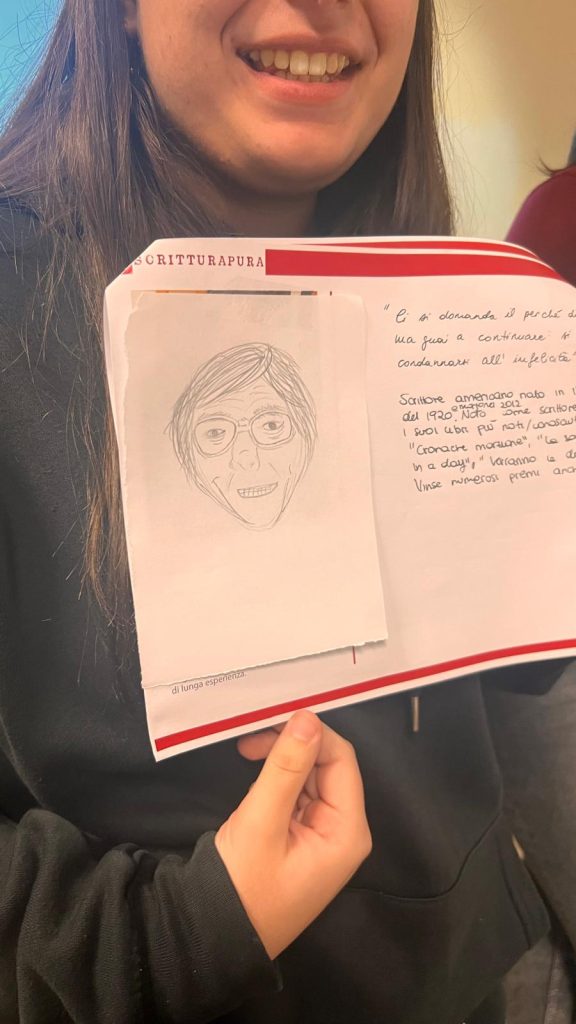 SCRITTURAPURA
"Ci si domanda il perché di
ma guai a continuare si
condannarsi all' infelicità"
Scrittore americano nato in
del 1920 e morto nel 2012. Noto come scrittore
I suoi libri più noti/conosciuti
"Cronache marziane", "La
In a day", "Verranno le
Vinse numerosi premi anch
di lunga esperienza.